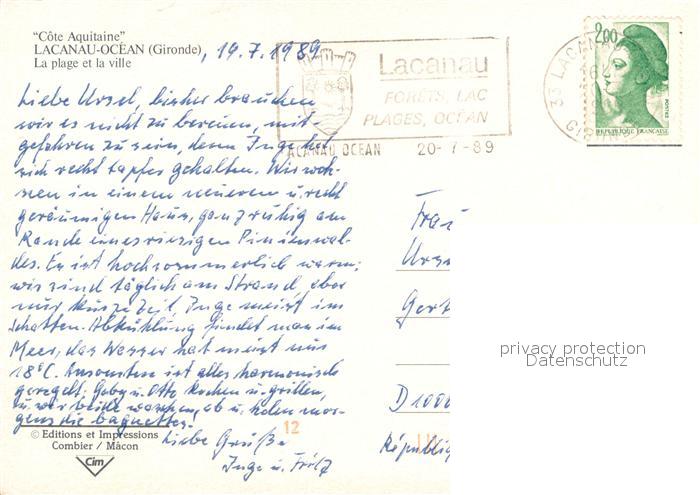 "Côte Aquitaine"
LACANAU-OCÉAN (Gironde)
La plage et la ville
, 19.7.1989
Liebe Ursel, bisher brauchen
wir es nicht zu bereuen, mit-
gefahren zu sein, denn Inge hat
sich recht tapfer gehalten. Wir woh-
nen in einem neueren u. recht
geräumigen Haus, ganz ruhig am
Rande eines riesigen Pinienwal-
des. Es ist hochsommerlich warm;
wir sind täglich am Strand, aber
nur kurze Zeit, Inge meist im
Schatten. Abkühlung findet man im
Meer, das Wasser hat meist nur
18°C. Ansonsten ist alles harmonisch
geregelt: Gaby u. Otto kochen u. grillen,
u. wir beide waschen, ab u. holen mor-
gens die baguettes.
Liebe Grüße
Inge u. Fritz
© Editions et Impressions
Combier / Mâcon
Cim
12
Lacanau
FORÊTS, LAC
PLAGES, OCÉAN
LACANAU OCEAN 20-7-89
33 LACANAU
GIRONDE
2,00
POSTES
REPUBLIQUE FRANÇAISE
Frau
Urs
Gert
D 1000
Républiq
privacy protection
Datenschutz